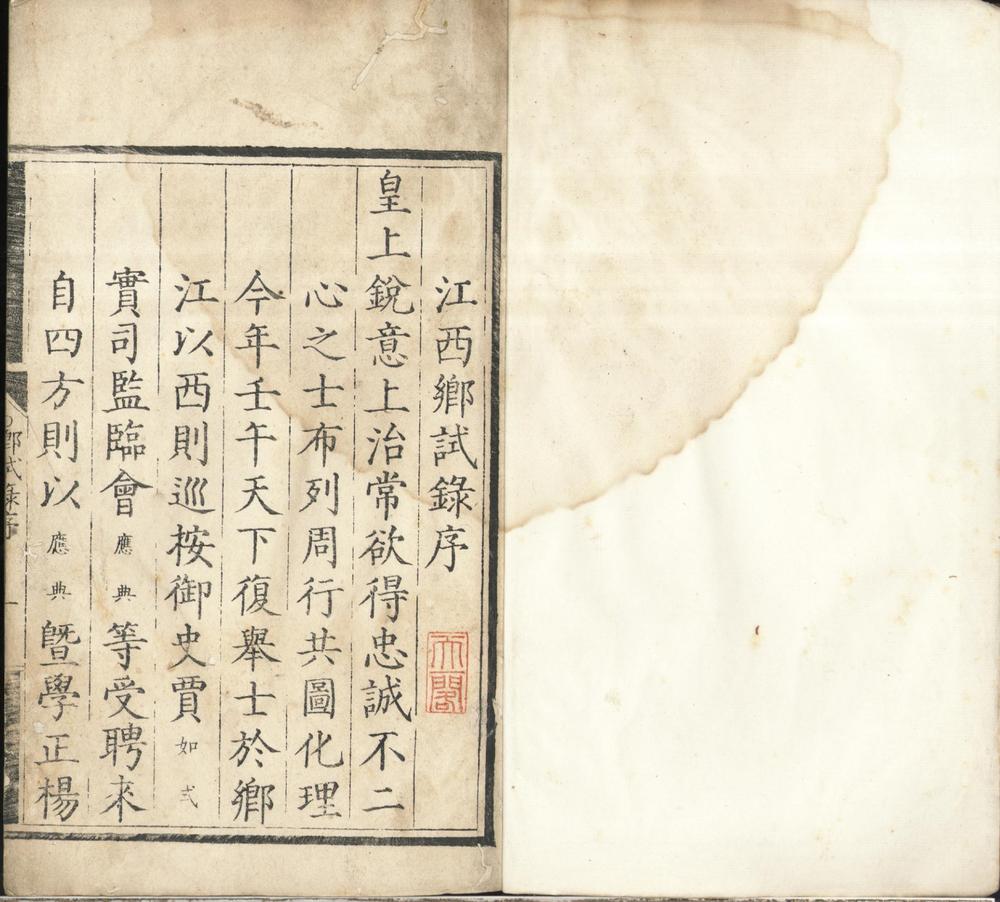 江西鄉試錄序
天一閣
皇上銳意上治常欲得忠誠不二
心之士布列周行共圖化理
今年壬午天下復舉士於鄉
江以西則巡按御史賈如式
實司監臨會應典等受聘來
自四方則以應典曁學正楊
鄉試錄序
一